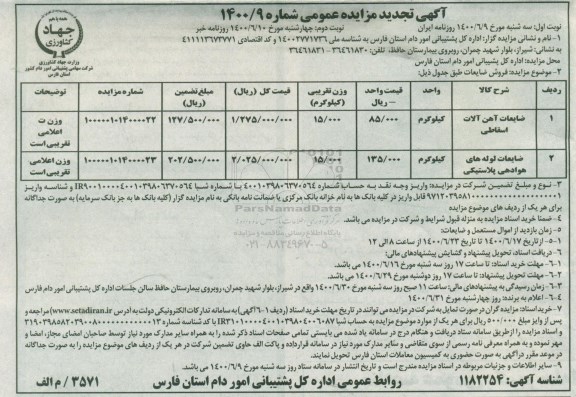 آگهی تجدید مزایده عمومی شماره ۱۴۰۰/۹
جهاد
کشاورزی
وزارت جهاد کشاورزی
شرکت سهامی پشتیبانی امور دام کشور
استان فارس
نوبت اول: سه شنبه مورخ ۱۴۰۰/۶/۹ روزنامه ایران نوبت دوم: چهارشنبه مورخ ۱۴۰۰/۶/۱۰ روزنامه خبر
۱- نام و نشانی مزایده گزار: اداره کل پشتیبانی امور دام استان فارس به شناسه ملی ۱۴۰۰۲۷۷۱۷۳۶ و کد اقتصادی ۴۱۱۱۱۳۶۷۳۷۷۱
به نشانی: شیراز، بلوار شهید چمران، روبروی بیمارستان حافظ، تلفن: ۳۶۴۶۱۸۳۰-۳۶۴۶۱۸۳۱
محل مزایده: اداره کل پشتیبانی امور دام استان فارس
۲- موضوع مزایده: فروش ضایعات طبق جدول ذیل:
ردیف شرح کالا واحد قیمت واحد – ریال وزن تقریبی (کیلوگرم) قیمت کل (ریال) مبلغ تضمین (ریال) شماره مزایده توضیحات
۱ ضایعات آهن آلات اسقاطی کیلوگرم ۸۵/۰۰۰ ۱۵/۰۰۰ ۱/۲۷۵/۰۰۰/۰۰۰ ۱۲۷/۵۰۰/۰۰۰ ۱۰۰۰۰۰۱۰۱۴۰۰۰۰۲۲ وزن ت اعلامی تقریبی است
۲ ضایعات لوله های هوادهی پلاستیکی کیلوگرم ۱۳۵/۰۰۰ ۱۵/۰۰۰ ۲/۰۲۵/۰۰۰/۰۰۰ ۲۰۲/۵۰۰/۰۰۰ ۱۰۰۰۰۰۱۰۱۴۰۰۰۰۲۳ وزن اعلامی تقریبی است
۳- نوع و مبلغ تضمین شرکت در مزایده: واریز وجه نقد به حساب شماره ۴۰۰۱۰۳۹۸۰۶۳۷۰۵۶۴ با شماره شبا و شناسه واریز
قابل واریز در کلیه بانک ها به نام خزانه بانک مرکزی یا ضمانت نامه بانکی به نام مزایده گزار (کلیه بانک ها به جز بانک سرمایه) به صورت جداگانه
برای هر یک از ردیف های موضوع مزایده
۴- ضمنا خرید اسناد مزایده به منزله قبول شرایط و شرکت در مزایده می باشد.
۵- زمان بازدید از اموال مستعمل و ضایعات:
۱-۵- از تاریخ ۱۴۰۰/۶/۱۷ تا تاریخ ۱۴۰۰/۶/۲۳ از ساعت ۸ الی ۱۲
۶- دریافت اسناد، تحویل پیشنهاد و گشایش پیشنهادهای مالی:
۱-۶- مهلت خرید اسناد: تا ساعت ۱۷ روز سه شنبه مورخ ۱۴۰۰/۶/۱۶ می باشد.
۲-۶- مهلت تحویل پیشنهاد: تا ساعت ۱۷ روز دوشنبه مورخ ۱۴۰۰/۶/۲۹ می باشد.
۳-۶- زمان رسیدگی به پیشنهادهای مالی: ساعت ۱۱ صبح روز سه شنبه مورخ ۱۴۰۰/۶/۳۰ واقع در شیراز، بلوار شهید چمران، روبروی بیمارستان حافظ سالن جلسات اداره کل پشتیبانی امور دام فارس
۴-۶- اعلام به برنده: روز چهارشنبه مورخ ۱۴۰۰/۶/۳۱
۷- خرید اسناد: مزایده گران در صورت تمایل به شرکت در مزایده می توانند در تاریخ مهلت خرید اسناد (ردیف ۱-۶ آگهی) به سامانه تدارکات الکترونیکی دولت به آدرس www.setadiran.ir مراجعه و
پس از واریز مبلغ ۵۰۰/۰۰۰ ریال برای هر یک از موارد موضوع مزایده به حساب شبا با کد شناسه شماره
و اسناد مزایده را از طریق سامانه ستاد دریافت و هنگام درج در سامانه یاد شده می بایستی تمامی صفحات اسناد ذکر شده را به همراه سایر مدارک مورد نیاز توسط صاحبان امضای مجاز، امضا و
مهر نموده و به همراه معرفی نامه رسمی از سوی متقاضی و سایر مدارک مورد نیاز در سامانه قرارداده و پاکت الف حاوی تضمین شرکت در هر یک از ردیف های موضوع مزایده را به صورت جداگانه
در موعد مقرر در آگهی به صورت حضوری به کمیسیون معاملات استان فارس تحویل نمایند.
۹- سایر اطلاعات و جزئیات مربوطه در اسناد مزایده مندرج است و تاریخ انتشار در سامانه ستاد روز سه شنبه مورخ ۱۴۰۰/۶/۹ می باشد.
شناسه آگهی: ۱۱۸۲۲۵۴ روابط عمومی اداره کل پشتیبانی امور دام استان فارس ۳۵۷۱ / م الف
ParsNamadData
۰۲۱-۸۸۳۴۹۶۷۰-۵